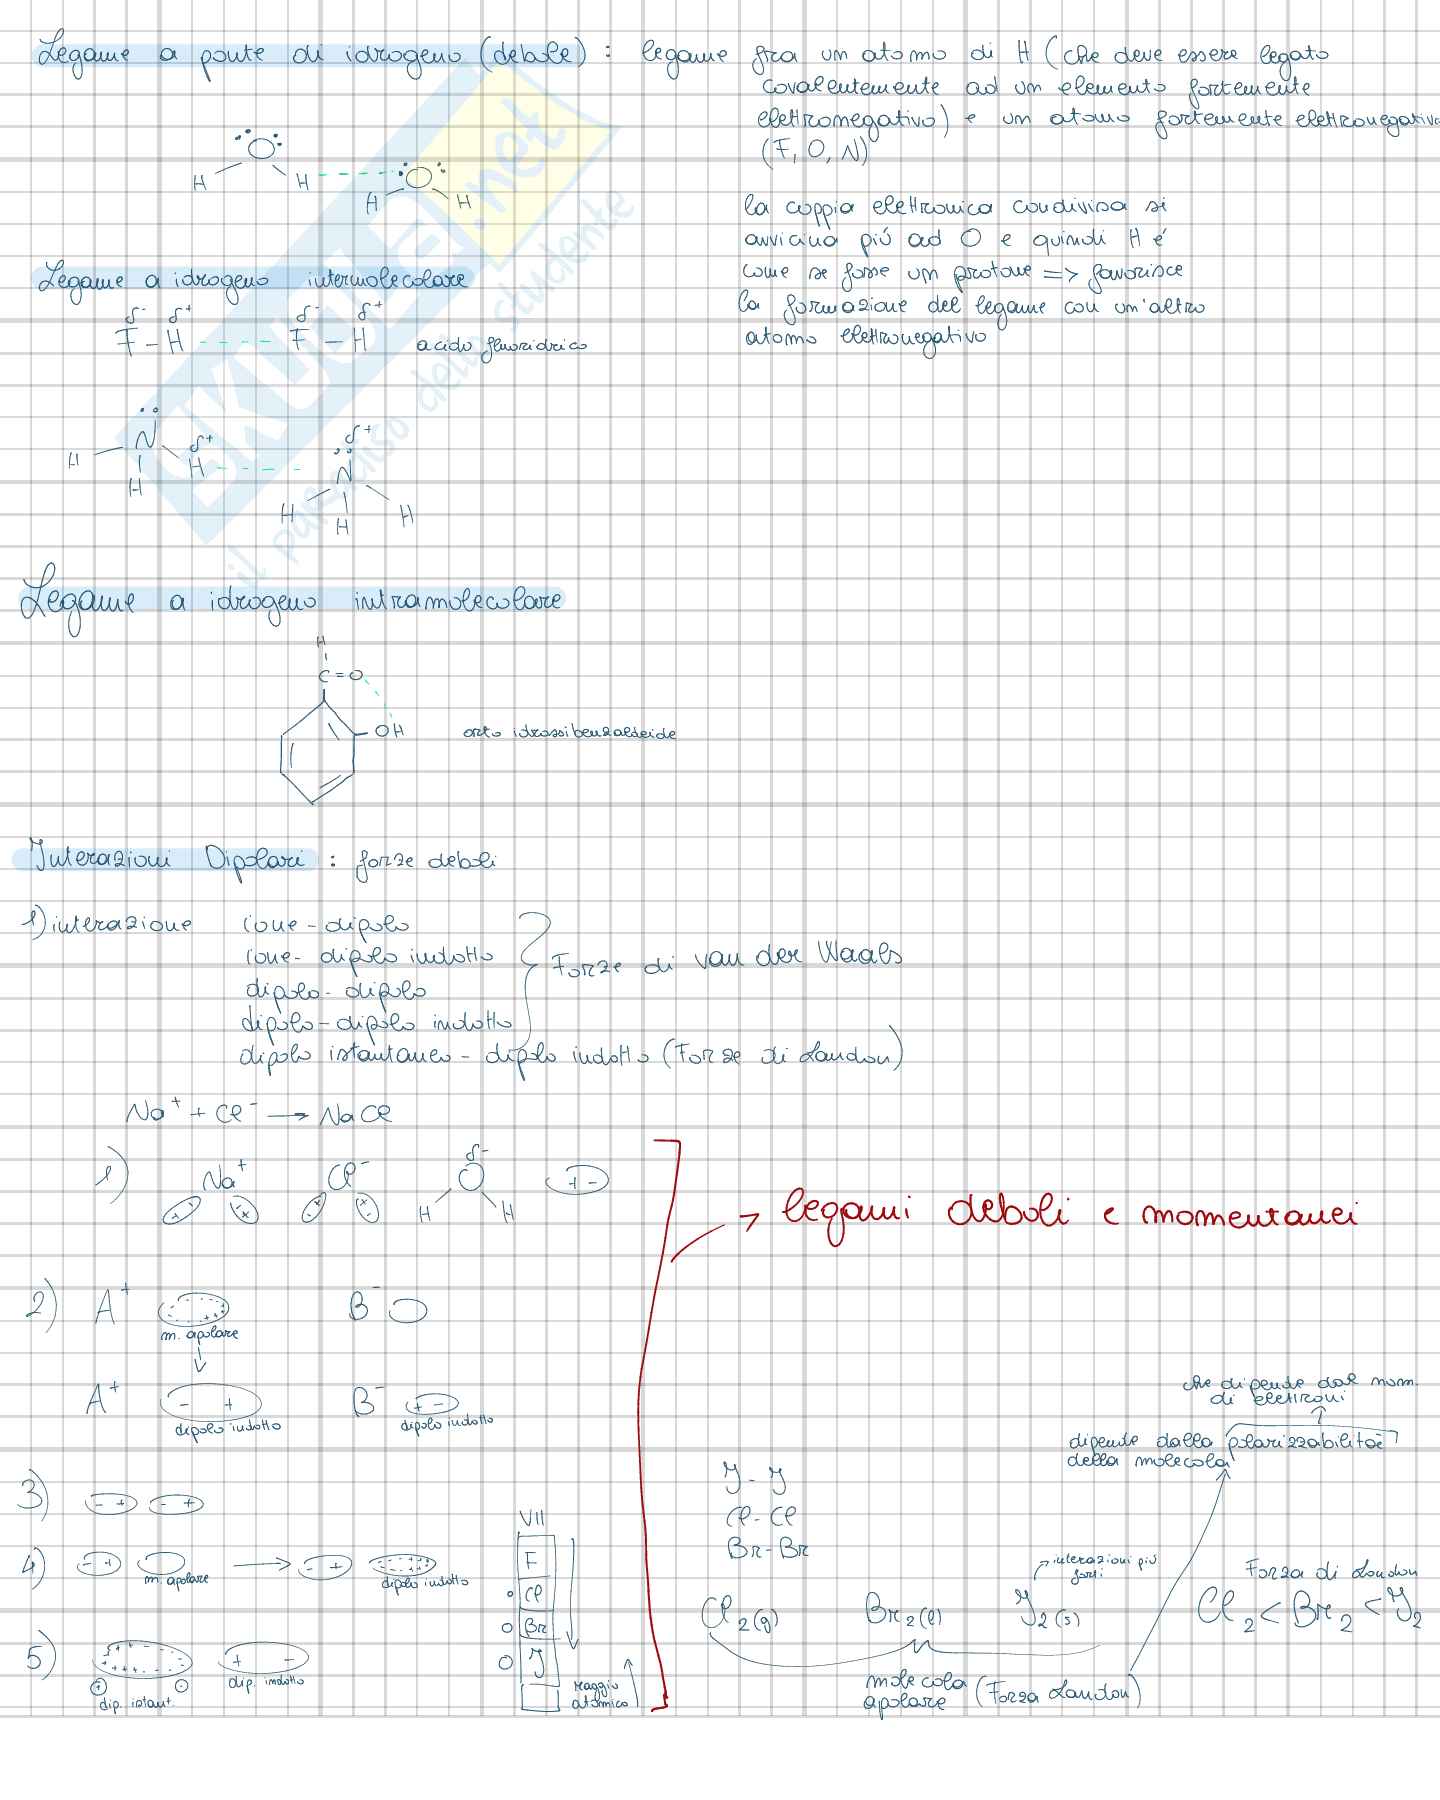 Legame a ponte di idrogeno (debole) : legame fra un atomo di H (che deve essere legato
covalentemente ad un elemento fortemente
elettronegativo) e un atomo fortemente elettronegativo
(F, O, N)
O
H H O
H H
la coppia elettronica condivisa si
avvicina più ad O e quindi H è
come se fosse un protone => favorisce
la formazione del legame con un'altro
atomo elettronegativo
Legame a idrogeno intermolecolare
δ- δ+ δ- δ+
F - H F - H acido fluoridrico
N δ+
H H
H
δ+
N
H H
H
Legame a idrogeno intramolecolare
H
C = O
OH orto idrossibenzaldeide
Interazioni Dipolari : forze deboli
1) interazione ione - dipolo
ione - dipolo indotto
Forze di van der Waals
dipolo - dipolo
dipolo - dipolo indotto
dipolo istantaneo - dipolo indotto (Forze di London)
Na+ + Cl- → NaCl
1) Na+ Cl- δ- O + -
H H
→ legami deboli e momentanei
2) A+ B-
m. apolare
A+ - + B- + -
dipolo indotto dipolo indotto
3) - + - +
4) - + → - +
m. apolare dipolo indotto
5) + -
+ -
dip. istant. dip. indotto
VII
F
Cl
Br
I
raggio
atomico
I - I
Cl - Cl
Br - Br
che dipende dal num.
di elettroni
dipende dalla polarizzabilità
della molecola
interazioni più
forti
Cl2(g) Br2(l) I2(s)
molecola
apolare (Forza London)
Forza di London
Cl2 < Br2 < I2
SKUOLA.net
il paradiso dello studente